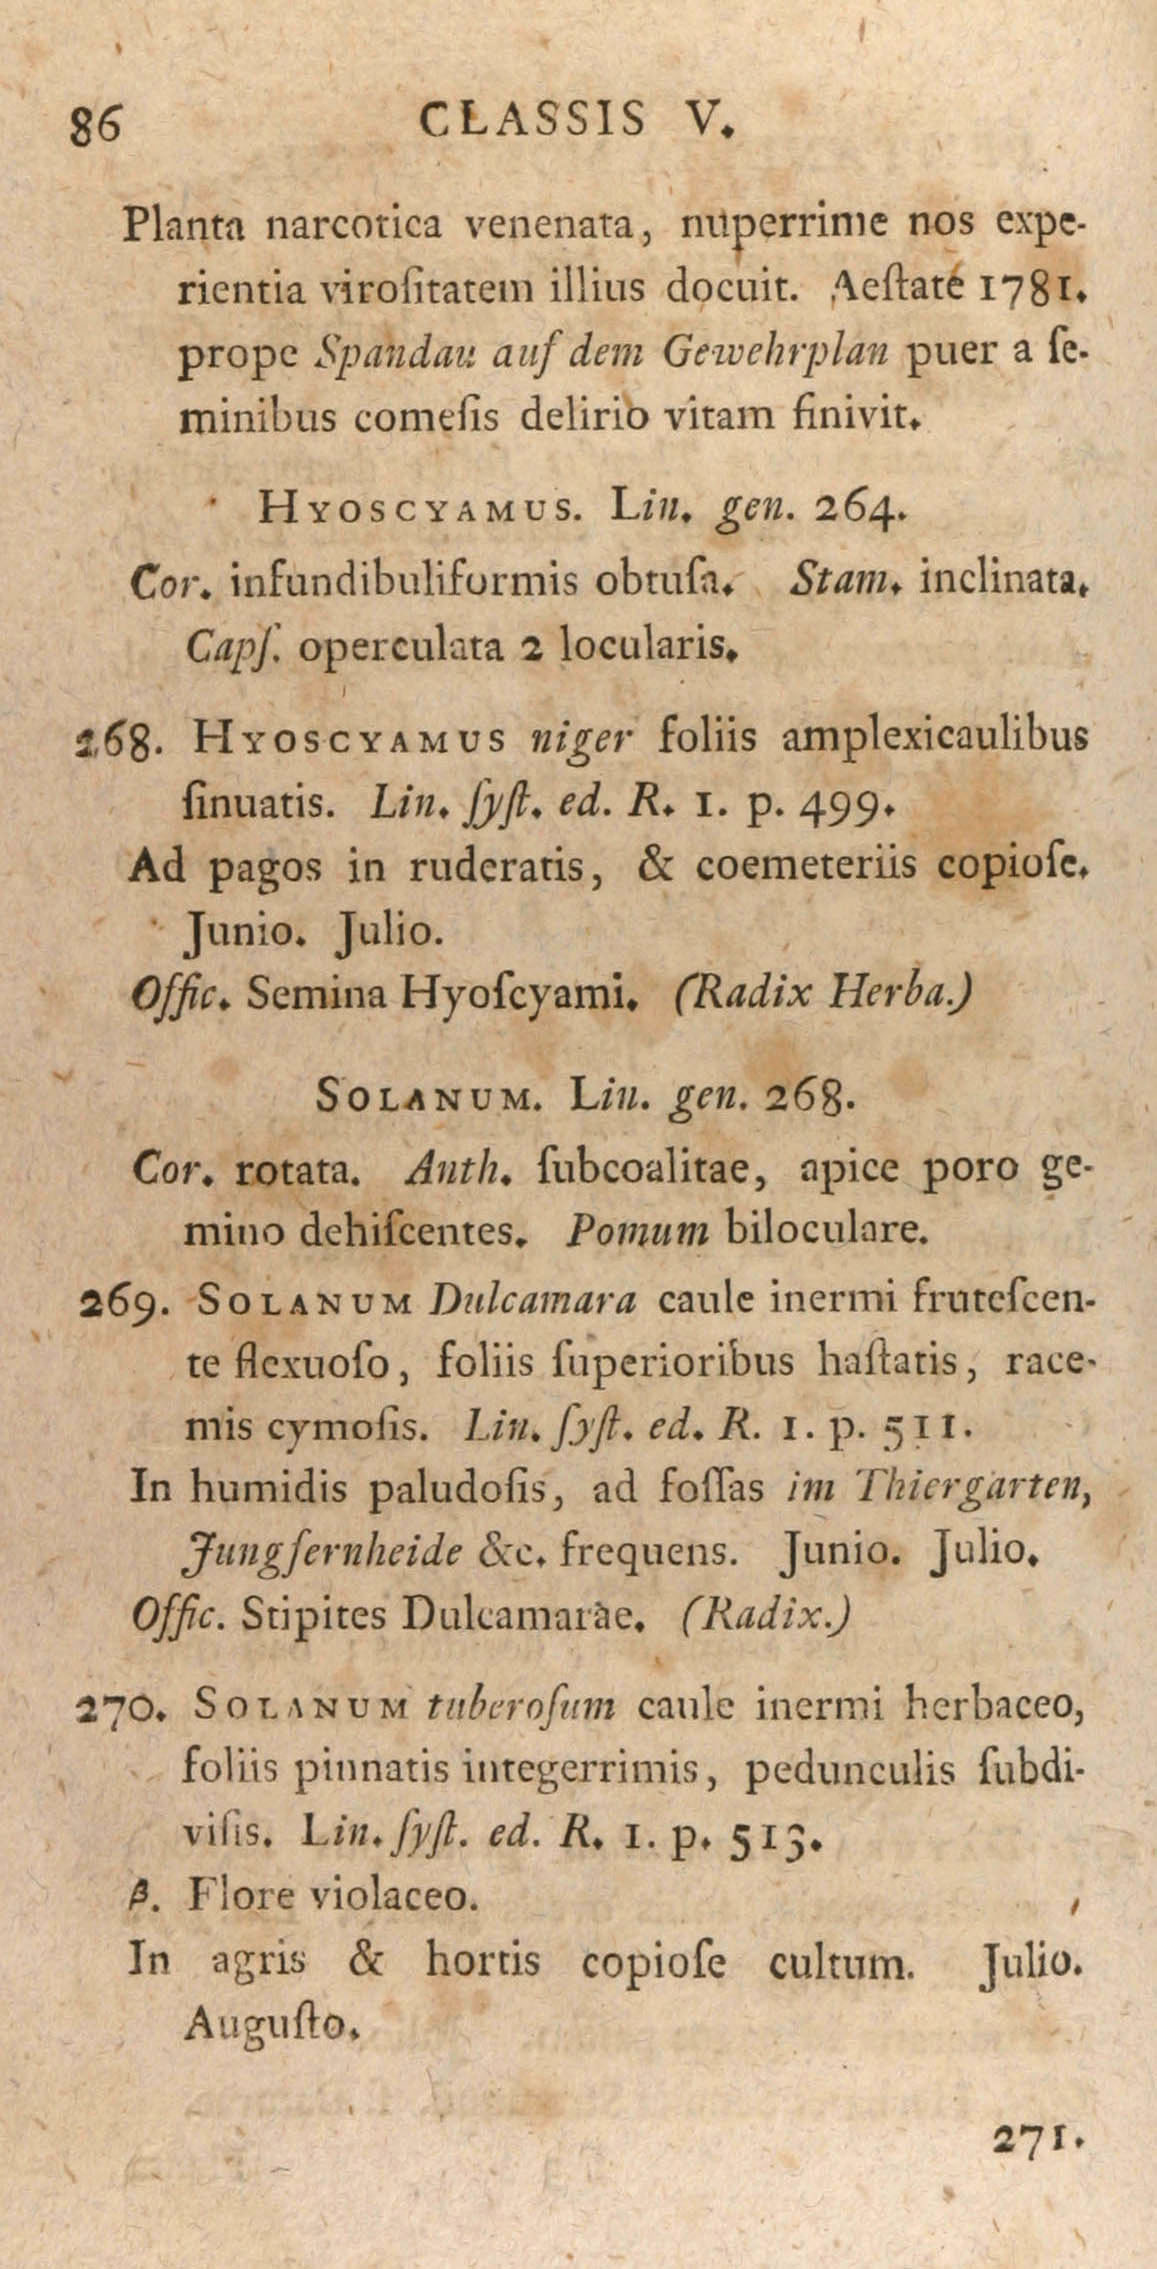 86 CLASSIS V.
Planta narcotica venenata, nuperrime nos expe-
rientia viroſitatem illius docuit. Aeſtate 1781.
prope Spandau auf dem Gewehrplan puer a ſe-
minibus comeſis delirio vitam finivit.
HYOSCYAMUS. Lin. gen. 264.
Cor. infundibuliformis obtuſa. Stam. inclinata.
Capſ. operculata 2 locularis.
268. HYOSCYAMUS niger foliis amplexicaulibus
ſinuatis. Lin. ſyſt. ed. R. 1. p. 499.
Ad pagos in ruderatis, & coemeteriis copioſe.
Junio. Julio.
Offic. Semina Hyoſcyami. (Radix Herba.)
SOLANUM. Lin. gen. 268.
Cor. rotata. Anth. ſubcoalitae, apice poro ge-
mino dehiſcentes. Pomum biloculare.
269. SOLANUM Dulcamara caule inermi fruteſcen-
te flexuoſo, foliis ſuperioribus haſtatis, race-
mis cymoſis. Lin. ſyſt. ed. R. 1. p. 511.
In humidis paludoſis, ad foſſas im Thiergarten,
Jungfernheide &c. frequens. Junio. Julio.
Offic. Stipites Dulcamarae. (Radix.)
270. SOLANUM tuberoſum caule inermi herbaceo,
foliis pinnatis integerrimis, pedunculis ſubdi-
viſis. Lin. ſyſt. ed. R. 1. p. 513.
β. Flore violaceo.
In agris & hortis copioſe cultum. Julio.
Auguſto.
271.